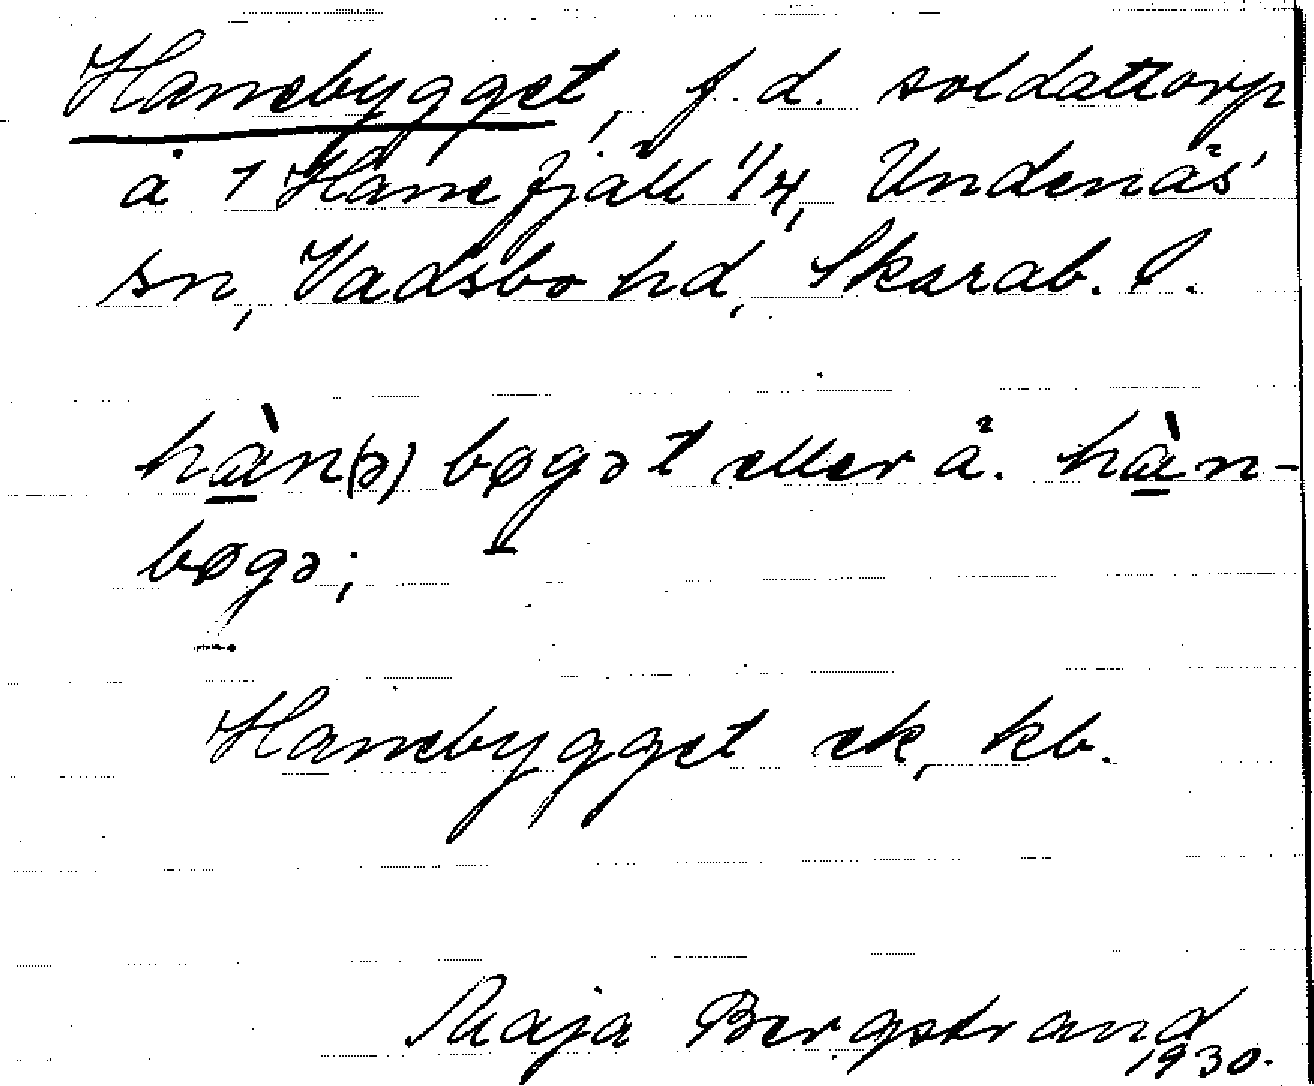 Hanebygget, f.d. soldattorp
å 1 Hanefjäll 1/4, Undenäs
sn, Vadsbo hd, Skarab. l.
hàn(ə)bøgət eller ä. hàn-
bøgə;
Hanebygget ek, kb.
Maja Bergstrand
1930.